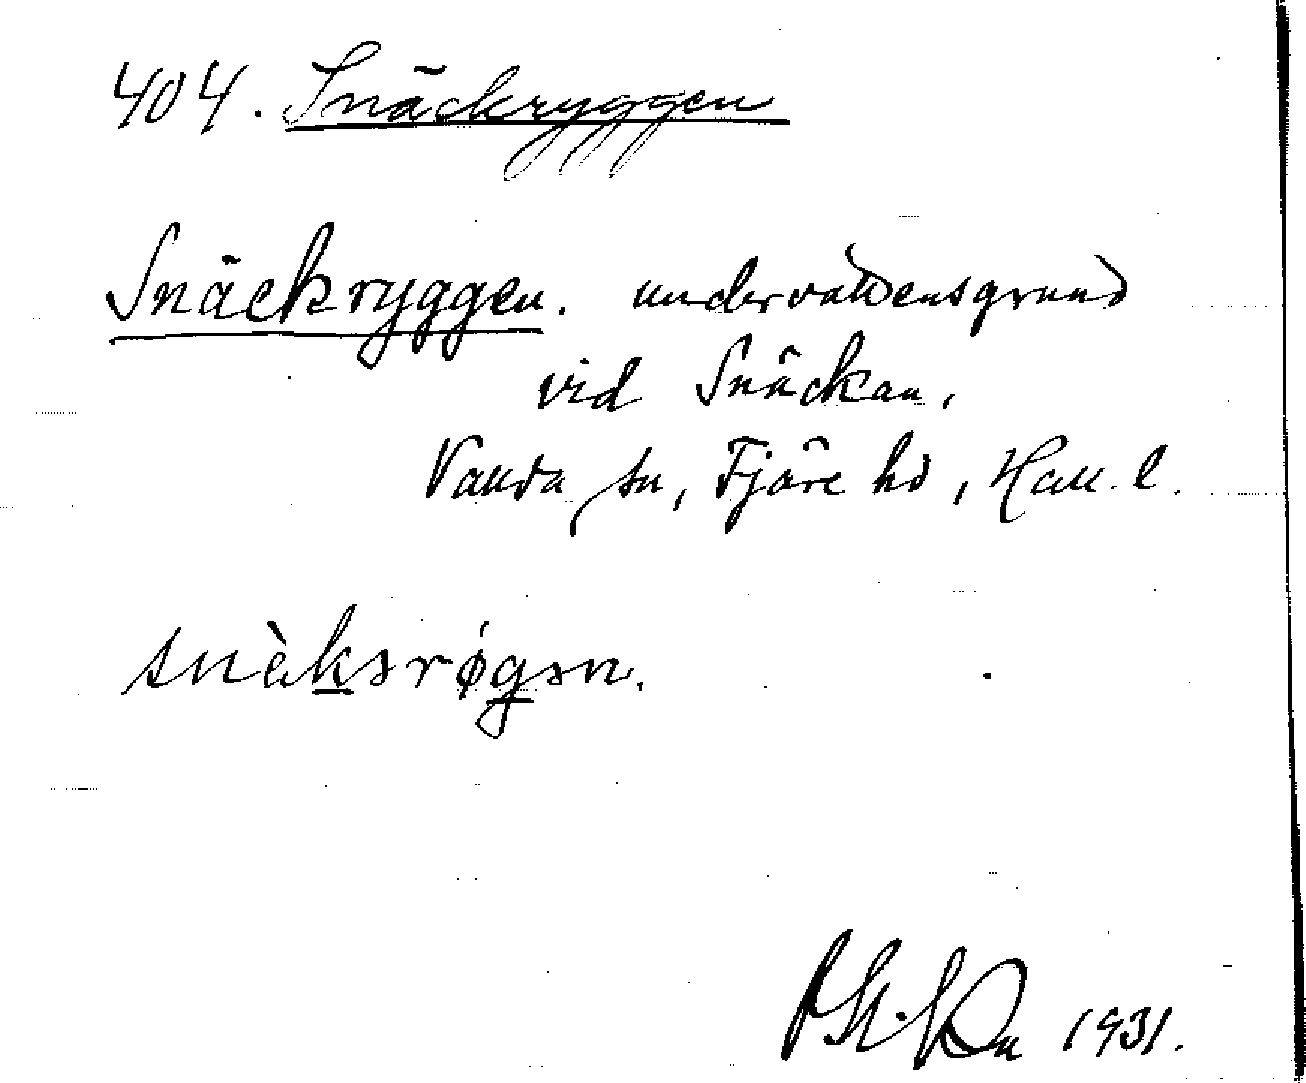 404. Snäckryggen
Snäckryggen. undervattensgrund
vid Snäckan,
Vanda sn, Fjäre hd, Hall. l.
snèksrǿgən.
1931.